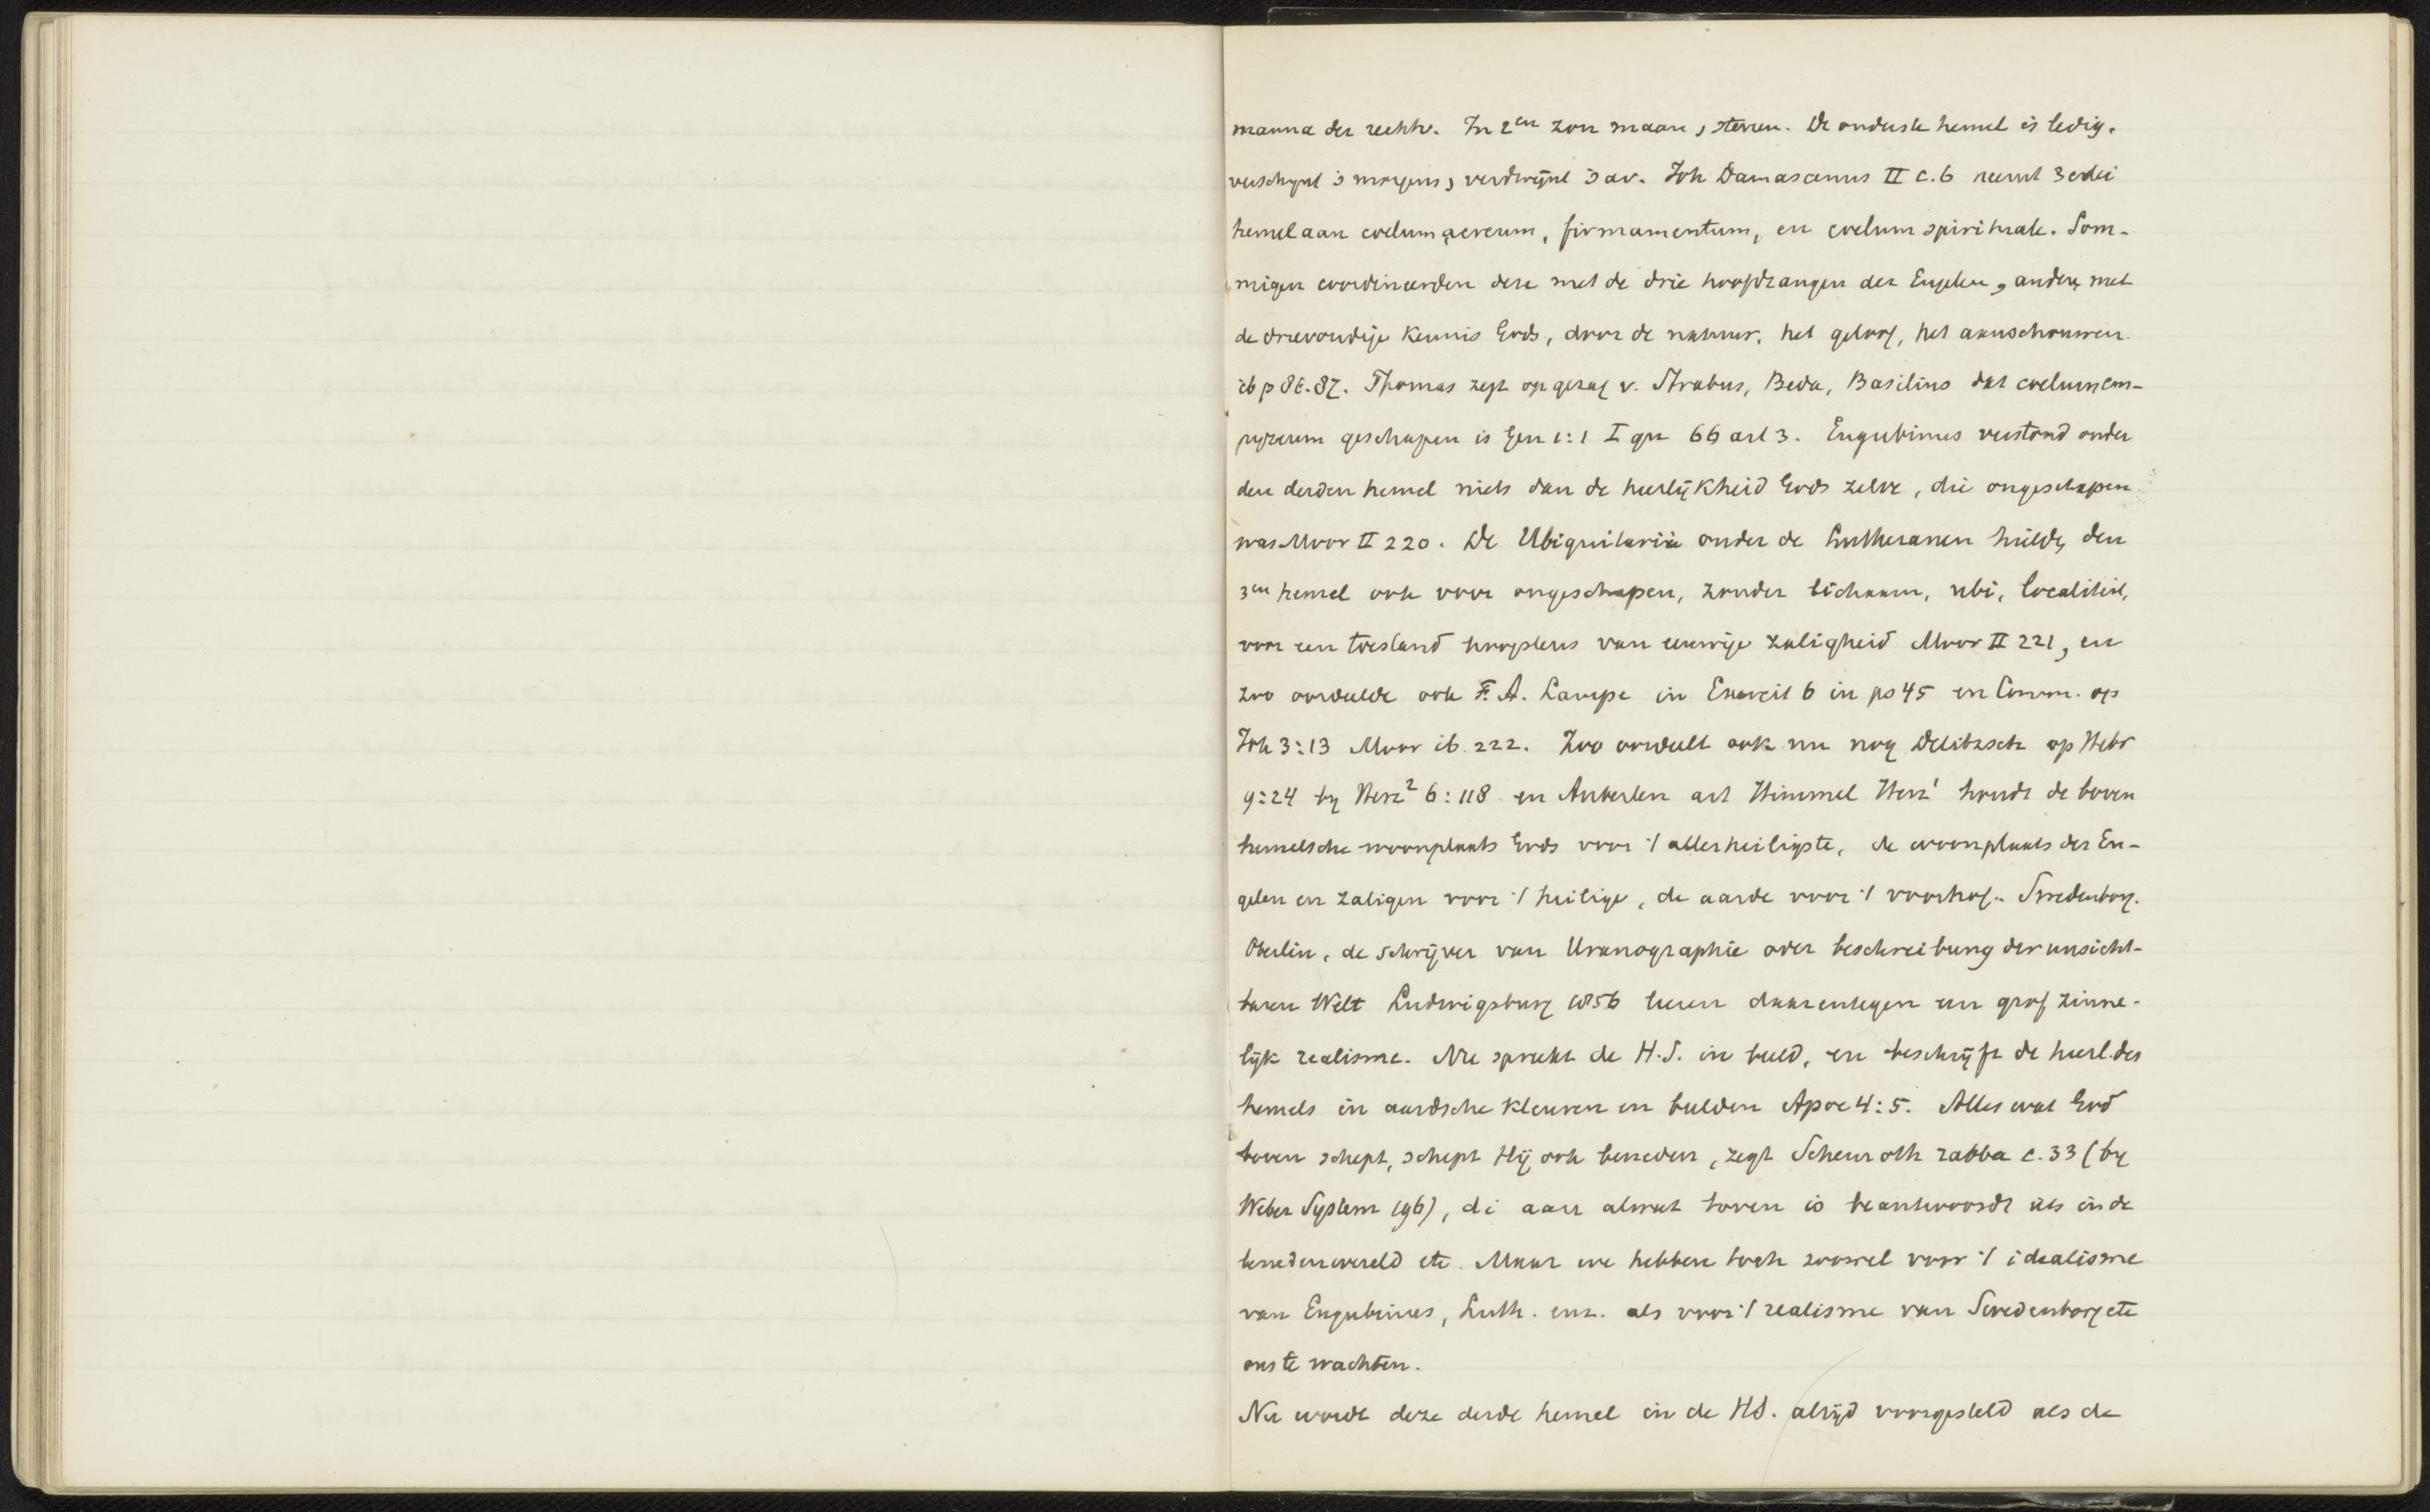 manna der rechtv. In 2en zon maan, sterren. De onderste hemel is ledig.
verschijnt 's morgens, verdwijnt 's av. Joh Damascenus II c. 6 neemt 3 erlei
hemel aan coelum aereum, firmamentum, en coelum spirituale. Som-
migen coordineerden deze met de drie hoofdrangen der Engelen, andere met
de drievoudige Kennis Gods, door de natuur, het geloof, het aanschouwen.
ib p 86. 87. Thomas zegt op gezag v. Strabus, Beda, Basilius dat coelum em-
pyreum geschapen is Gen 1:1 I qu 66 art 3. Eugubinus verstond onder
den derden hemel niets dan de heerlijkheid Gods zelve, die ongeschapen
was Moor II 220. De Ubiquitarii onder de Lutheranen hielde, den
3en hemel ook voor ongeschapen, zonder lichaam, ubi, localiteit,
voor een toestand hoogstens van eeuwige zaligheid Moor II 221, en
zoo oordeelde ook F. A. Lampe in Exercit 6 in ps 45 en Comm. op
Joh 3:13 Moor ib. 222. Zoo oordeelt ook nu nog Delitzsch op Hebr
9:24 by Herz² 6:118 en Auberlen art Himmel Herz¹ houdt de boven
hemelsche woonplaats Gods voor 't allerheiligste, de woonplaats der En-
gelen en zaligen voor 't heilige, de aarde voor 't voorhof.. Swedenborg.
Oberlin, de schrijver van Uranographie oder beschreibung der unsicht-
baren Welt Ludwigsburg 1856 leeren daarentegen een grof zinne-
lijk realisme. Nu spreekt de H.S. in beeld, en beschrijft de heerl. des
hemels in aardsche kleuren en beelden Apoc 4:5. Alles wat God
boven schept, schept Hij ook beneden, zegt Schemoth rabba c. 33 (by
Weber System 196), di aan alwat boven is beantwoordt iets in de
benedenwereld etc. Maar we hebben toch zoowel voor 't idealisme
van Eugubinus, Luth. enz. als voor 't realisme van Swedenborg etc
ons te wachten.
Nu wordt deze derde hemel in de HS. altijd voorgesteld als de